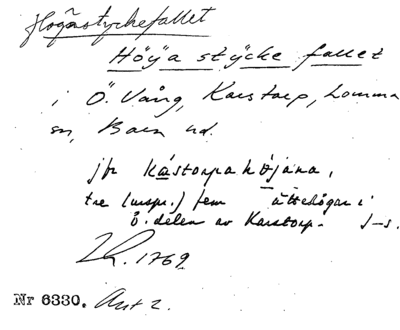 Högastyckefallet
Höÿa stÿcke fallet
i Ö. Vång, Karstorp, Lomma
sn, Bara hd.
jfr kåstorpahöjana,
tre (urspr.) fem ättehögar i
ö. delen av Karstorp. J-s.
LR. 1769
Nr 6330. Akt 2.